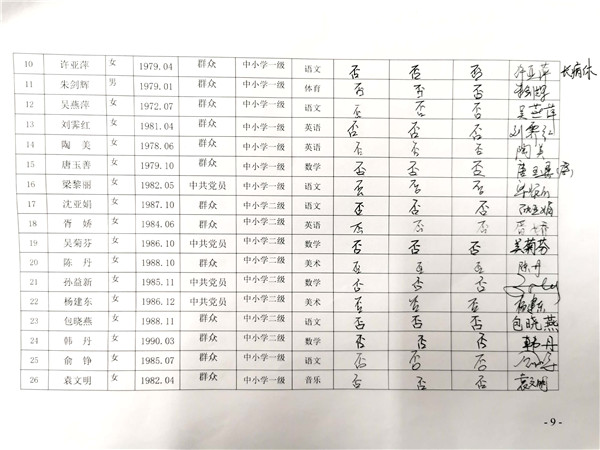 10 许亚萍 女 1979.04 群众 中小学一级 语文 否 否 否 许亚萍 长病休
11 朱剑辉 男 1979.01 群众 中小学一级 体育 否 否 否
12 吴燕萍 女 1972.07 群众 中小学一级 语文 否 否 否 吴燕萍
13 刘霁红 女 1981.04 群众 中小学一级 英语 否 否 否 刘霁红
14 陶美 女 1978.06 群众 中小学一级 英语 否 否 否 陶美
15 唐玉善 女 1979.10 群众 中小学一级 数学 否 否 否
16 梁黎丽 女 1982.05 中共党员 中小学一级 语文 否 否 否
17 沈亚娟 女 1987.10 群众 中小学二级 语文 否 否 否 沈亚娟
18 胥娇 女 1984.06 群众 中小学二级 英语 否 否 否
19 吴菊芬 女 1986.10 中共党员 中小学二级 数学 否 否 否 吴菊芬
20 陈丹 女 1988.10 群众 中小学二级 美术 否 否 否 陈丹
21 孙益新 女 1985.11 中共党员 中小学二级 数学 否 否 否
22 杨建东 女 1986.12 中共党员 中小学二级 美术 否 否 否 杨建东
23 包晓燕 女 1988.11 群众 中小学二级 语文 否 否 否 包晓燕
24 韩丹 女 1990.03 群众 中小学二级 数学 否 否 否 韩丹
25 俞铮 女 1985.07 群众 中小学一级 语文 否 否 否
26 袁文明 女 1982.04 群众 中小学一级 音乐 否 否 否 袁文明
- 9 -